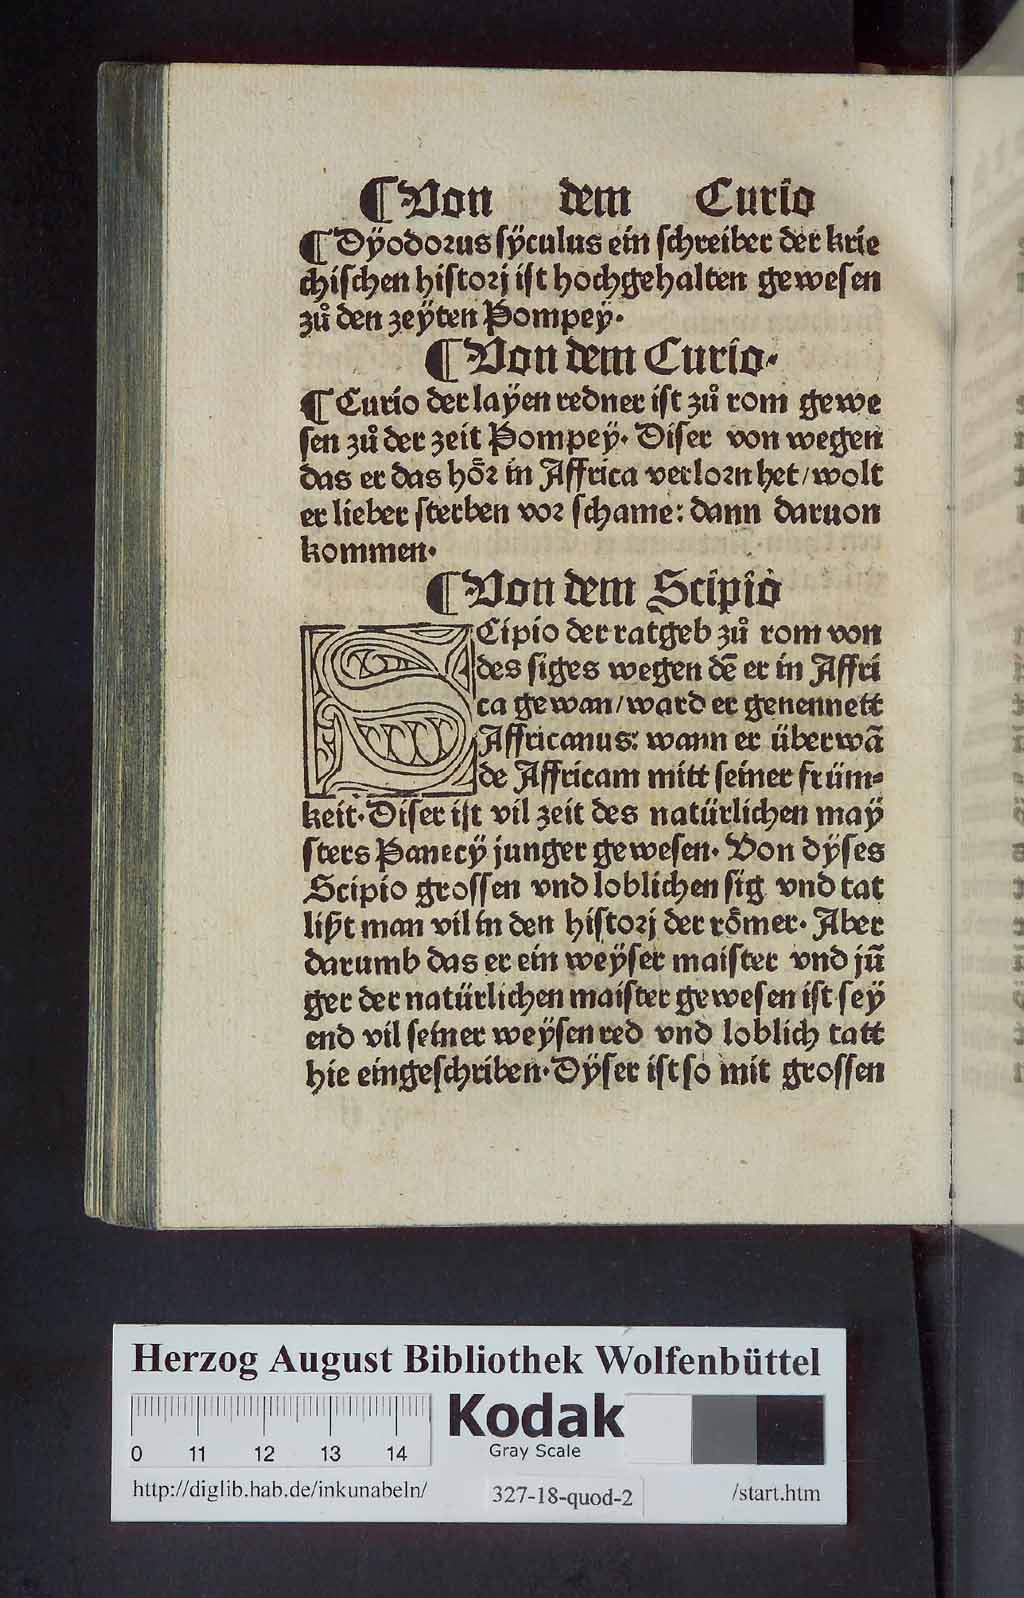 ¶Von dem Curio
¶Dÿodorus sÿculus ein schreiber der krie
chischen historj ist hochgehalten gewesen
zů den zeÿten Pompeÿ.
¶Von dem Curio.
¶Curio der laÿen redner ist zů rom gewe
sen zů der zeit Pompeÿ. Diser von wegen
das er das hoͤr in Affrica verlorn het/wolt
er lieber sterben vor schame: dann daruon
kommen.
¶Von dem Scipio
SCipio der ratgeb zů rom von
des siges wegen dē er in Affri
ca gewan/ward er genennett
Affricanus: wann er überwā
de Affricam mitt seiner früm⸗
keit. Diser ist vil zeit des natürlichen maÿ
sters Panecÿ junger gewesen. Von dÿses
Scipio grossen vnd loblichen sig vnd tat
lißt man vil in den historj der roͤmer. Aber
darumb das er ein weÿser maister vnd jū
ger der natürlichen maister gewesen ist seÿ
end vil seiner weÿsen red vnd loblich tatt
hie eingeschriben. Dÿser ist so mit grossen
Herzog August Bibliothek Wolfenbüttel
Kodak
Gray Scale
0 11 12 13 14
http://diglib.hab.de/inkunabeln/ 327-18-quod-2 /start.htm